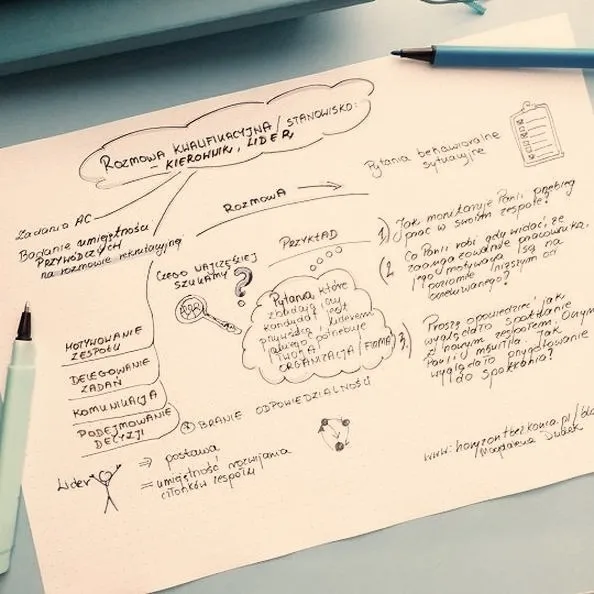 ROZMOWA KWALIFIKACYJNA / STANOWISKO:
- KIEROWNIK, LIDER
Zadania AC
Badanie umiejętności
PRZYWÓDCZYCH
na rozmowie rekrutacyjnej
ROZMOWA
Pytania behawioralne
sytuacyjne
CZEGO NAJCZĘŚCIEJ
SZUKAMY
?
PRZYKŁAD
Pytania, które
zbadają czy
kandydat jest
przywódcą i liderem
jakiego potrzebuje
TWOJA
ORGANIZACJA / FIRMA
1) Jak monitoruje Pan/i przebieg
prac w swoim zespole?
2. Co Pan/i robi gdy widać, że
zaangażowanie pracownika,
jego motywacja są na
poziomie niższym od
oczekiwanego?
3. Proszę opowiedzieć jak
wyglądało spotkanie
z nowym zespołem.
Pan/i mówił/a. Jak
wyglądało przygotowanie
do spotkania?
MOTYWOWANIE
ZESPOŁU
DELEGOWANIE
ZADAŃ
KOMUNIKACJA
PODEJMOWANIE
DECYZJI
BRANIE ODPOWIEDZIALNOŚCI
Lider
⇒ postawa
= umiejętność rozwijania
członków zespołu
www.horyzontbezkonca.pl/blo
Magdalena Dudek